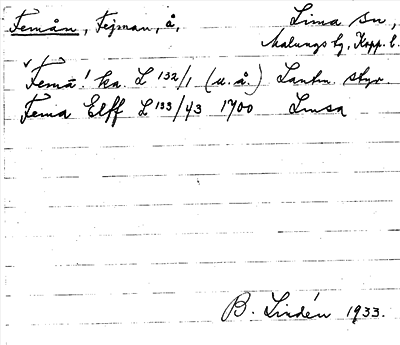 Femån, Fejman, å,
Lima sn,
Malungs tg, Kopp. l.
Femå! ka. L 132/1 (u.å.) Lantm. styr
Fema Elff L 133/43 1700 Limsa
B. Lindén 1933.